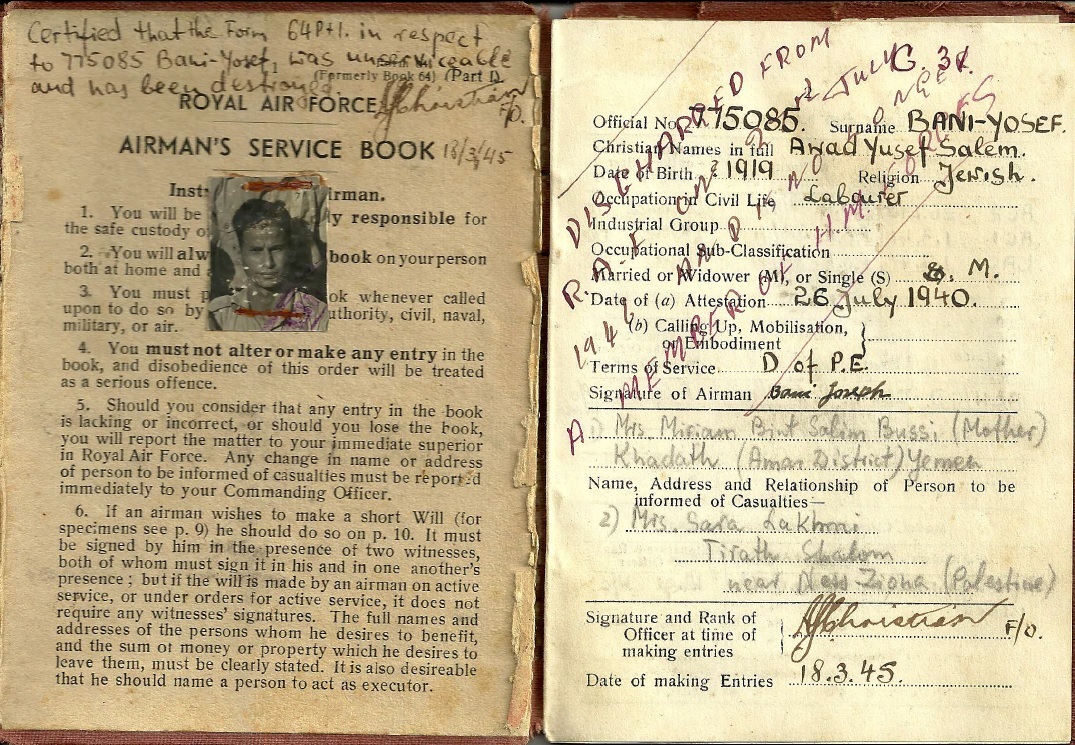 Certified that the Form 64 Pt I. in respect
to 775085 Bani-Yosef, was unserviceable
and has been destroyed.
(Formerly Book 64) (Part I).
ROYAL AIR FORCE
F/O.
AIRMAN'S SERVICE BOOK 18/3/45
Inst irman.
1. You will be ly responsible for
the safe custody o
2. You will alw book on your person
both at home and a
3. You must p ok whenever called
upon to do so by uthority, civil, naval,
military, or air.
4. You must not alter or make any entry in the
book, and disobedience of this order will be treated
as a serious offence.
5. Should you consider that any entry in the book
is lacking or incorrect, or should you lose the book,
you will report the matter to your immediate superior
in Royal Air Force. Any change in name or address
of person to be informed of casualties must be reported
immediately to your Commanding Officer.
6. If an airman wishes to make a short Will (for
specimens see p. 9) he should do so on p. 10. It must
be signed by him in the presence of two witnesses,
both of whom must sign it in his and in one another's
presence; but if the will is made by an airman on active
service, or under orders for active service, it does not
require any witnesses' signatures. The full names and
addresses of the persons whom he desires to benefit,
and the sum of money or property which he desires to
leave them, must be clearly stated. It is also desireable
that he should name a person to act as executor.
DISCHARGED FROM
R.A.F. ON 2 JULY
1946 AND IS NO
A MEMBER OF H.M. FORCES
Official No. 775085. Surname BANI-YOSEF.
Christian Names in full Awad Yusef Salem.
Date of Birth 1919 Religion Jewish.
Occupation in Civil Life Labourer
Industrial Group
Occupational Sub-Classification
Married or Widower (M), or Single (S) M.
Date of (a) Attestation 26 July 1940.
(b) Calling Up, Mobilisation,
or Embodiment
Terms of Service D of P.E.
Signature of Airman Bani Joseph
1) Mrs. Miriam Bint Salim Bussi (Mother)
Khadath (Amar District) Yemen
Name, Address and Relationship of Person to be
informed of Casualties—
2) Mrs. Sara Lakhmi
Tirath Shalom
near Ness Ziona (Palestine)
Signature and Rank of
Officer at time of
making entries
Christian F/O.
Date of making Entries 18.3.45.